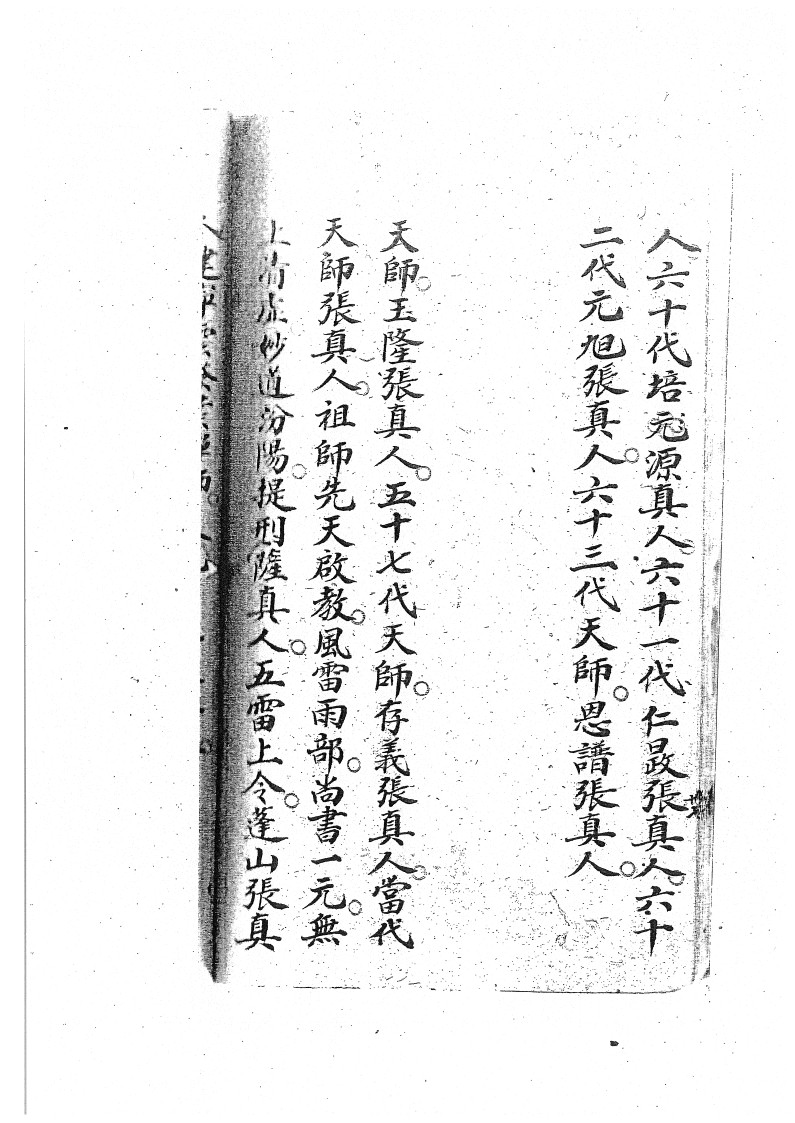 人六十代培元源真人六十一代仁晸張真人。六十
二代元旭張真人。六十三代天師。恩譜張真人。
天師。玉隆張真人。五十七代天師。存義張真人。當代
天師張真人。祖師先天啟教。風雷雨部。尚書一元。無
上清虛妙道汾陽。提刑薩真人。五雷上令。蓬山張真